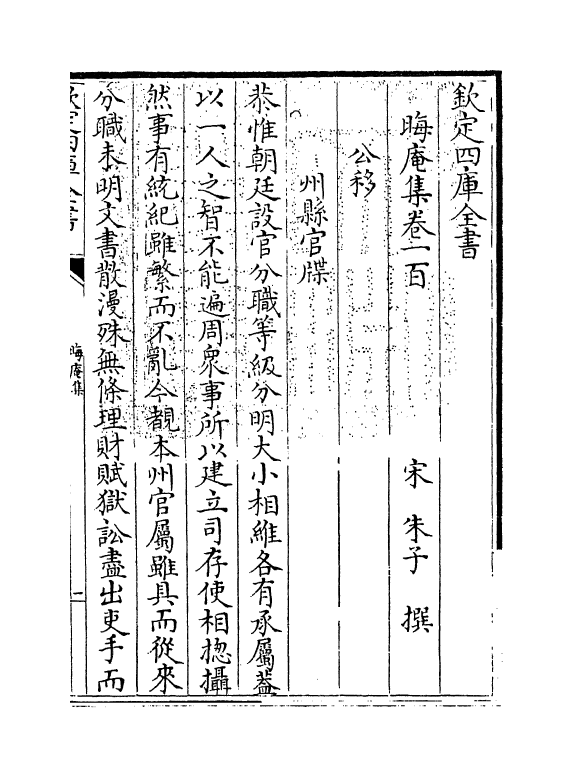 欽定四庫全書
晦庵集卷一百
宋 朱子 撰
公移
州縣官牒
恭惟朝廷設官分職等級分明大小相維各有承屬蓋
以一人之智不能遍周衆事所以建立司存使相揔攝
然事有統紀雖繁而不亂今覩本州官屬雖具而從來
分職未明文書散漫殊無條理財賦獄訟盡出吏手而
欽定四庫全書
晦庵集